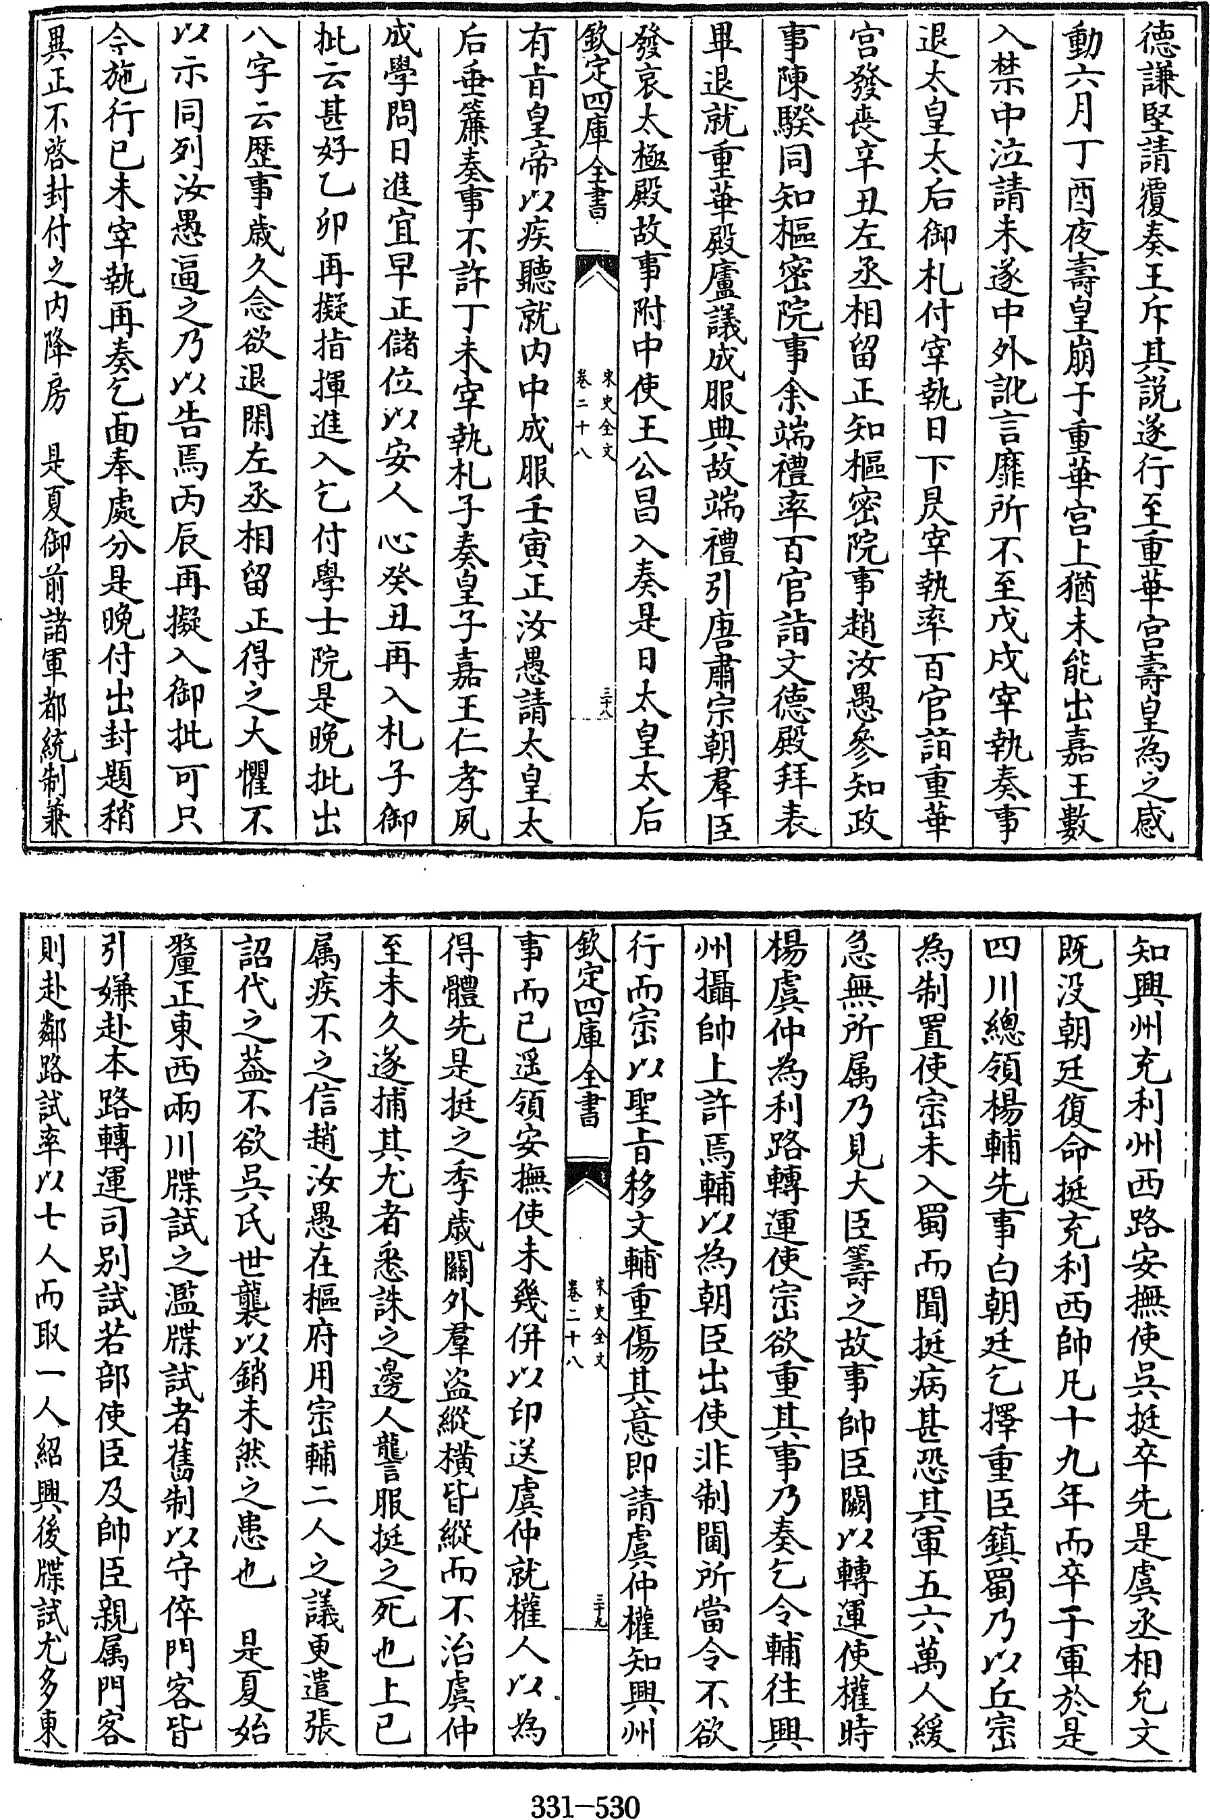 德謙堅請覆奏王斥其說遂行至重華宮壽皇為之感
動六月丁酉夜壽皇崩于重華宮上猶未能出嘉王數
入禁中泣請未遂中外訛言靡所不至戊戌宰執奏事
退太皇太后御札付宰執日下晟宰執率百官詣重華
宮發喪辛丑左丞相留正知樞密院事趙汝愚參知政
事陳騤同知樞密院事余端禮率百官詣文德殿拜表
畢退就重華殿廬議成服典故端禮引唐肅宗朝羣臣
發哀太極殿故事附中使王公昌入奏是日太皇太后
欽定四庫全書
宋史全文
卷二十八
三十八
有旨皇帝以疾聽就內中成服壬寅正汝愚請太皇太
后垂簾奏事不許丁未宰執札子奏皇子嘉王仁孝夙
成學問日進宜早正儲位以安人心癸丑再入札子御
批云甚好乙卯再擬指揮進入乞付學士院是晚批出
八字云歷事歲久念欲退閑左丞相留正得之大懼不
以示同列汝愚逼之乃以告焉丙辰再擬入御批可只
今施行已未宰執再奏乞面奉處分是晚付出封題稍
異正不啓封付之內降房 是夏御前諸軍都統制兼
知興州充利州西路安撫使吳挺卒先是虞丞相允文
既没朝廷復命挺充利西帥凡十九年而卒于軍於是
四川總領楊輔先事白朝廷乞擇重臣鎮蜀乃以丘崈
為制置使崈未入蜀而聞挺病甚恐其軍五六萬人緩
急無所属乃見大臣籌之故事帥臣闕以轉運使權時
楊虞仲為利路轉運使崈欲重其事乃奏乞令輔往興
州攝帥上許焉輔以為朝臣出使非制閫所當令不欲
行而崈以聖旨移文輔重傷其意即請虞仲權知興州
欽定四庫全書
宋史全文
卷二十八
三十九
事而已遥領安撫使未幾併以印送虞仲就權人以為
得體先是挺之季歲關外羣盜縱橫皆縱而不治虞仲
至未久遂捕其尤者悉誅之邊人讋服挺之死也上已
属疾不之信趙汝愚在樞府用崈輔二人之議更遣張
詔代之葢不欲吳氏世襲以銷未然之患也 是夏始
釐正東西兩川牒試之濫牒試者舊制以守倅門客皆
引嫌赴本路轉運司别試若部使臣及帥臣親属門客
則赴鄰路試率以七人而取一人紹興後牒試尤多東
331-530